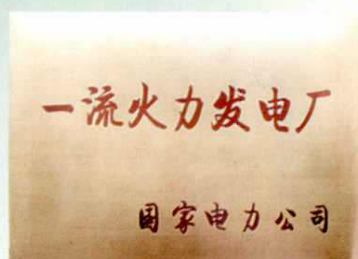 一流火力发电厂
国家电力公司